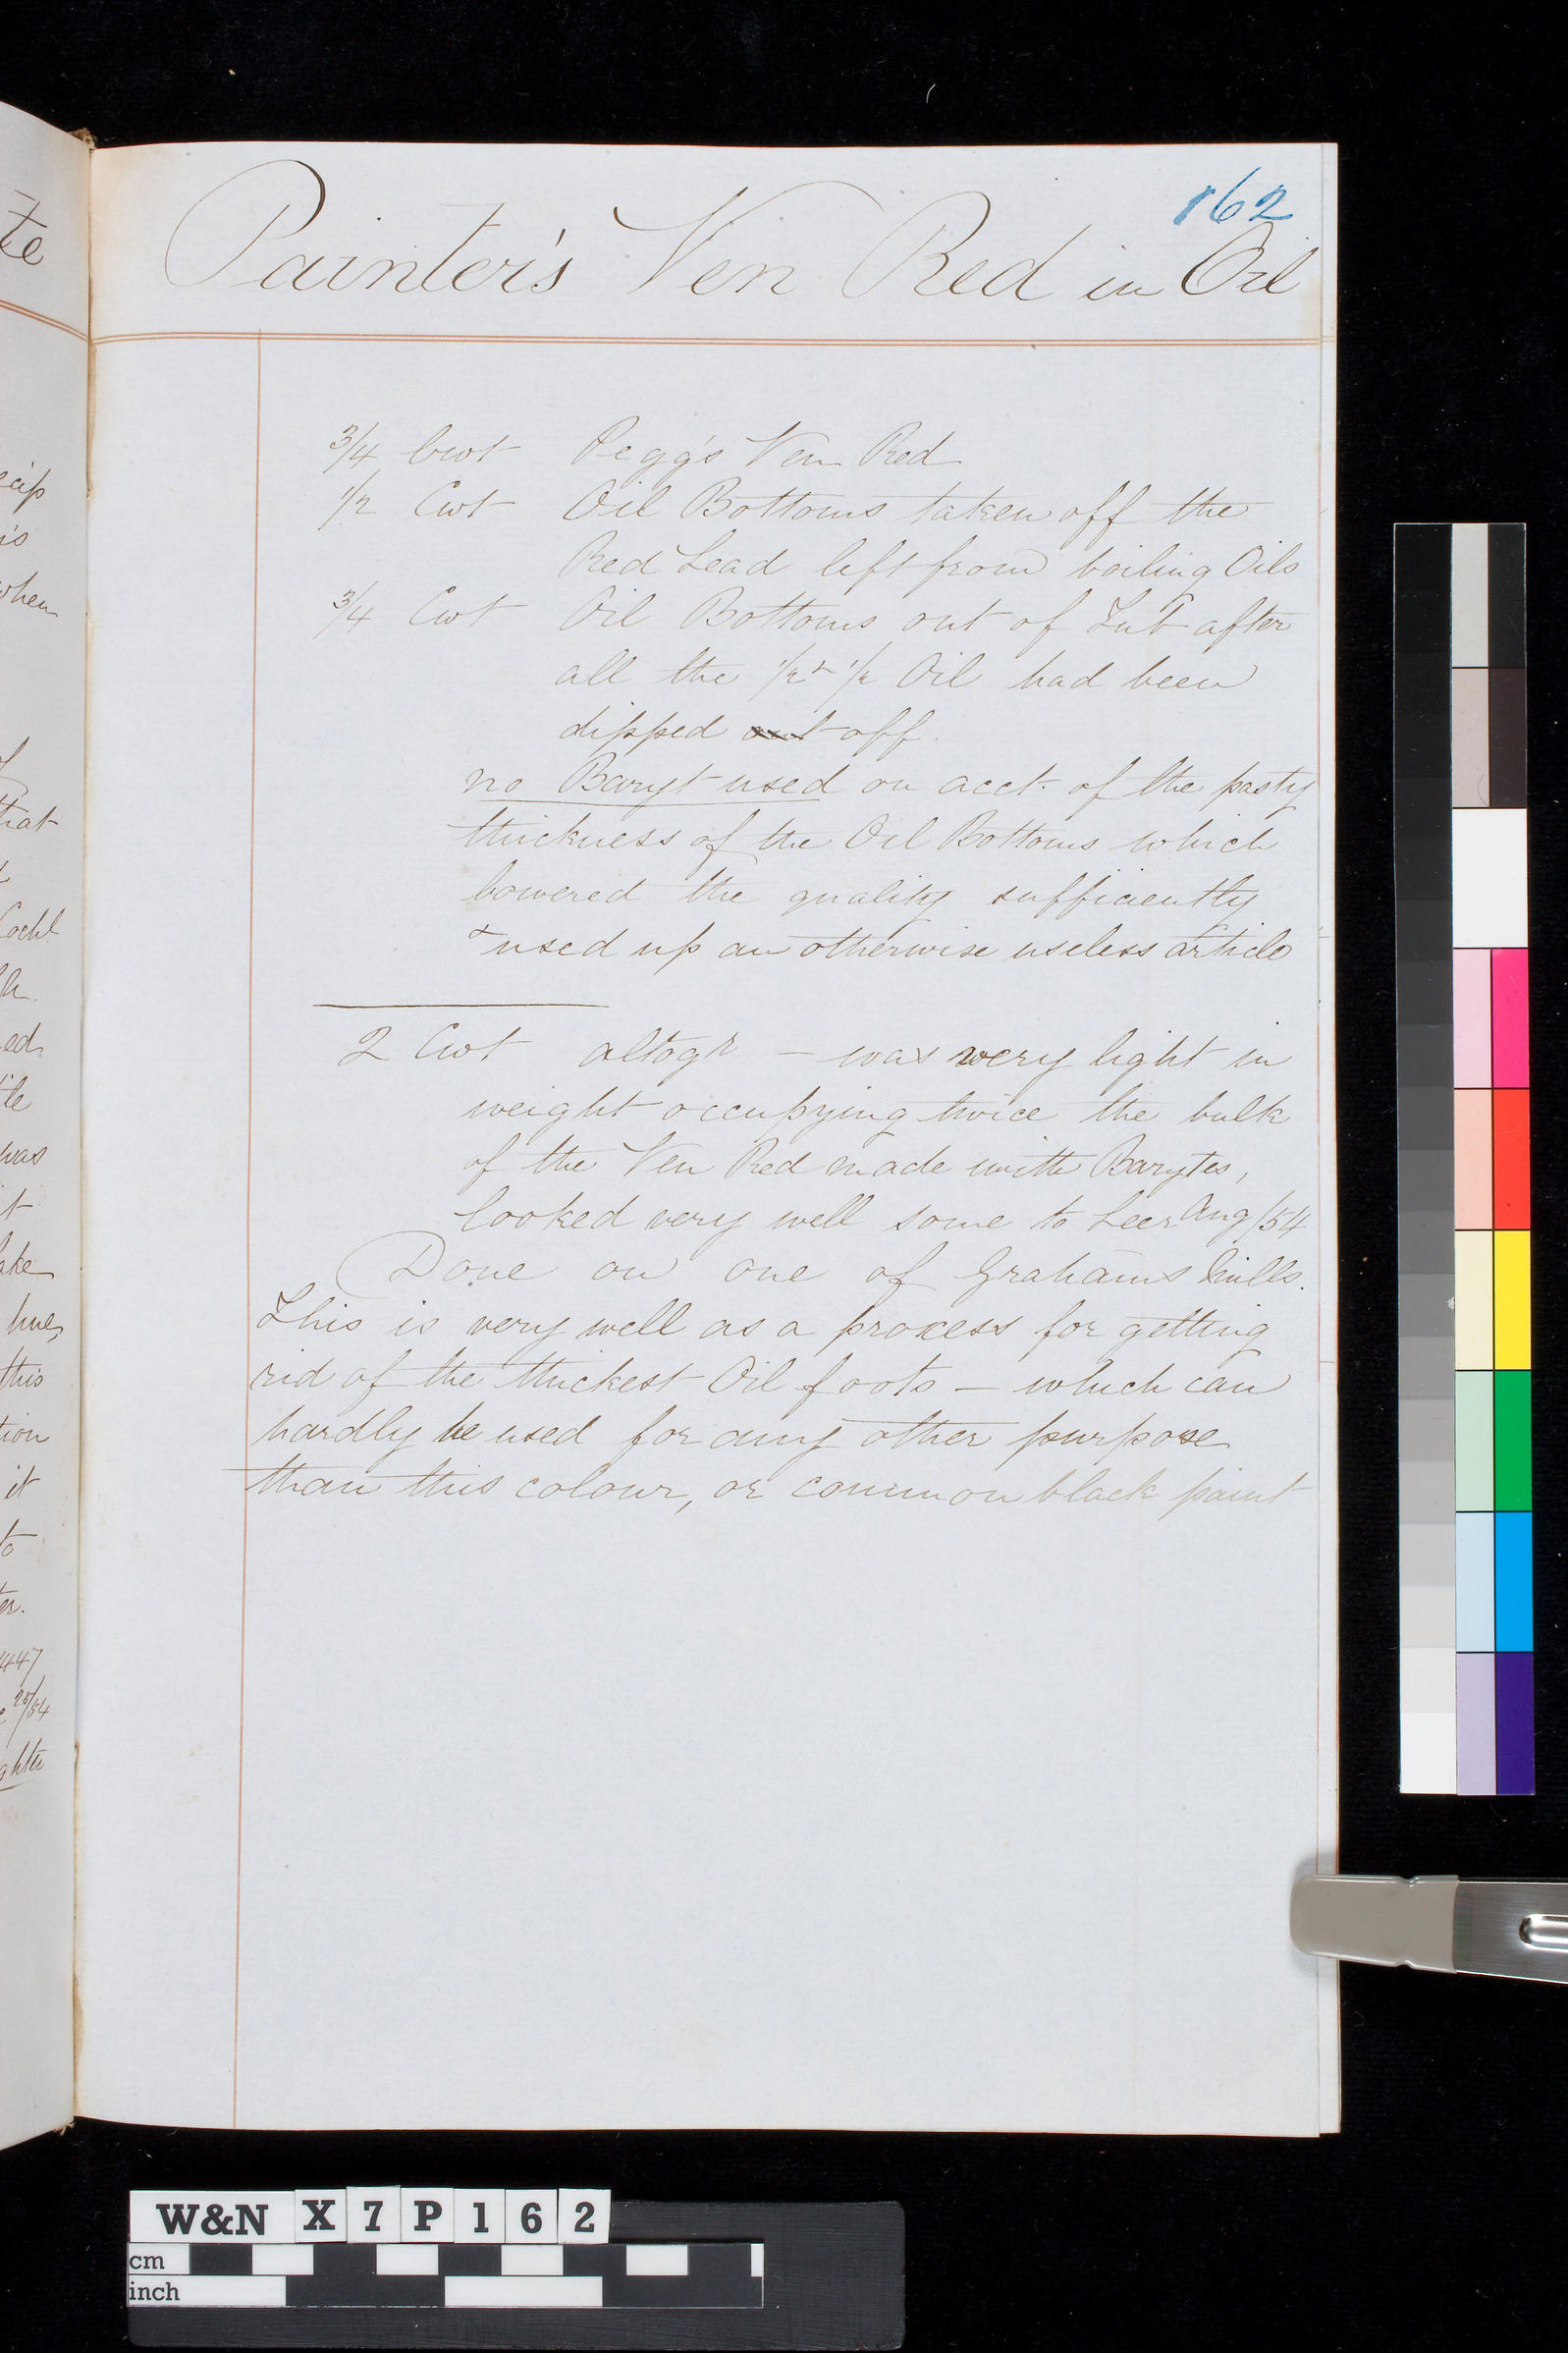 162
Painter's Ven Red in Oil
3/4 Cwt Pegg's Ven Red
1/2 Cwt Oil Bottoms taken off the
Red Lead left from boiling Oils
3/4 Cwt Oil Bottoms out of Tub after
all the 1/2 & 1/2 Oil had been
dipped out off.
no Baryt used on acct. of the pasty
thickness of the Oil Bottoms which
lowered the quality sufficiently
& used up an otherwise useless article
2 Cwt altogr - was very light in
weight occupying twice the bulk
of the Ven Red made with Barytes,
looked very well some to Leer Aug/54
Done on one of Grahams Mills.
This is very well as a process for getting
rid of the thickest Oil foots - which can
hardly be used for any other purpose
than this colour, or common black paint
te
is
when
that
ed
was
hue,
this
tion
it
to
447
25/54
W&N X7P162
cm
inch